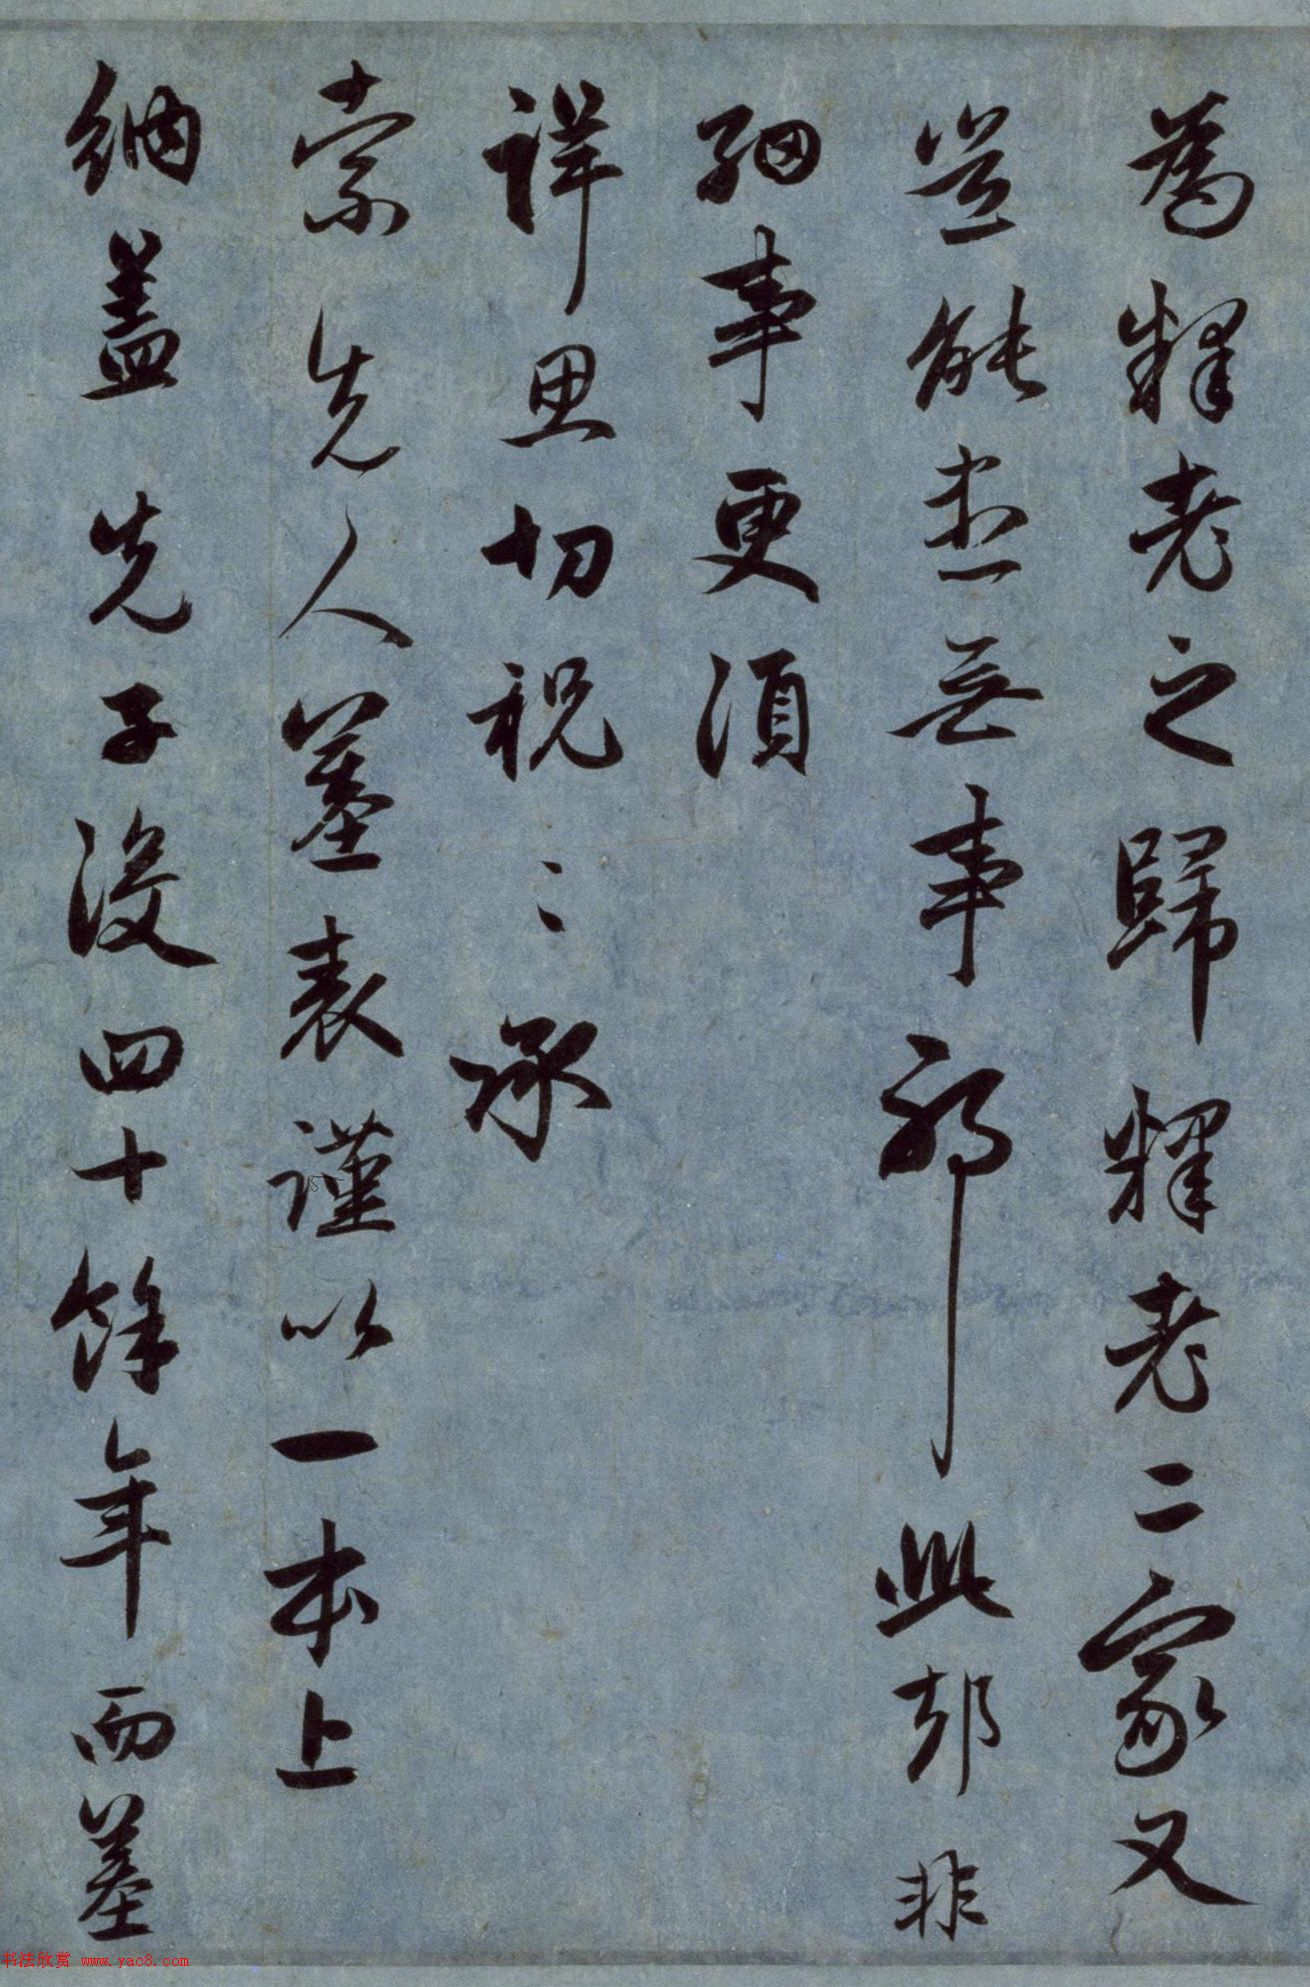 為釋老之歸釋老二家又
豈能盡無事耶此却非
細事更須
詳思切祝〻承
索先人墓表謹以一本上
納蓋先子沒四十餘年而墓
书法欣赏 www.yac8.com